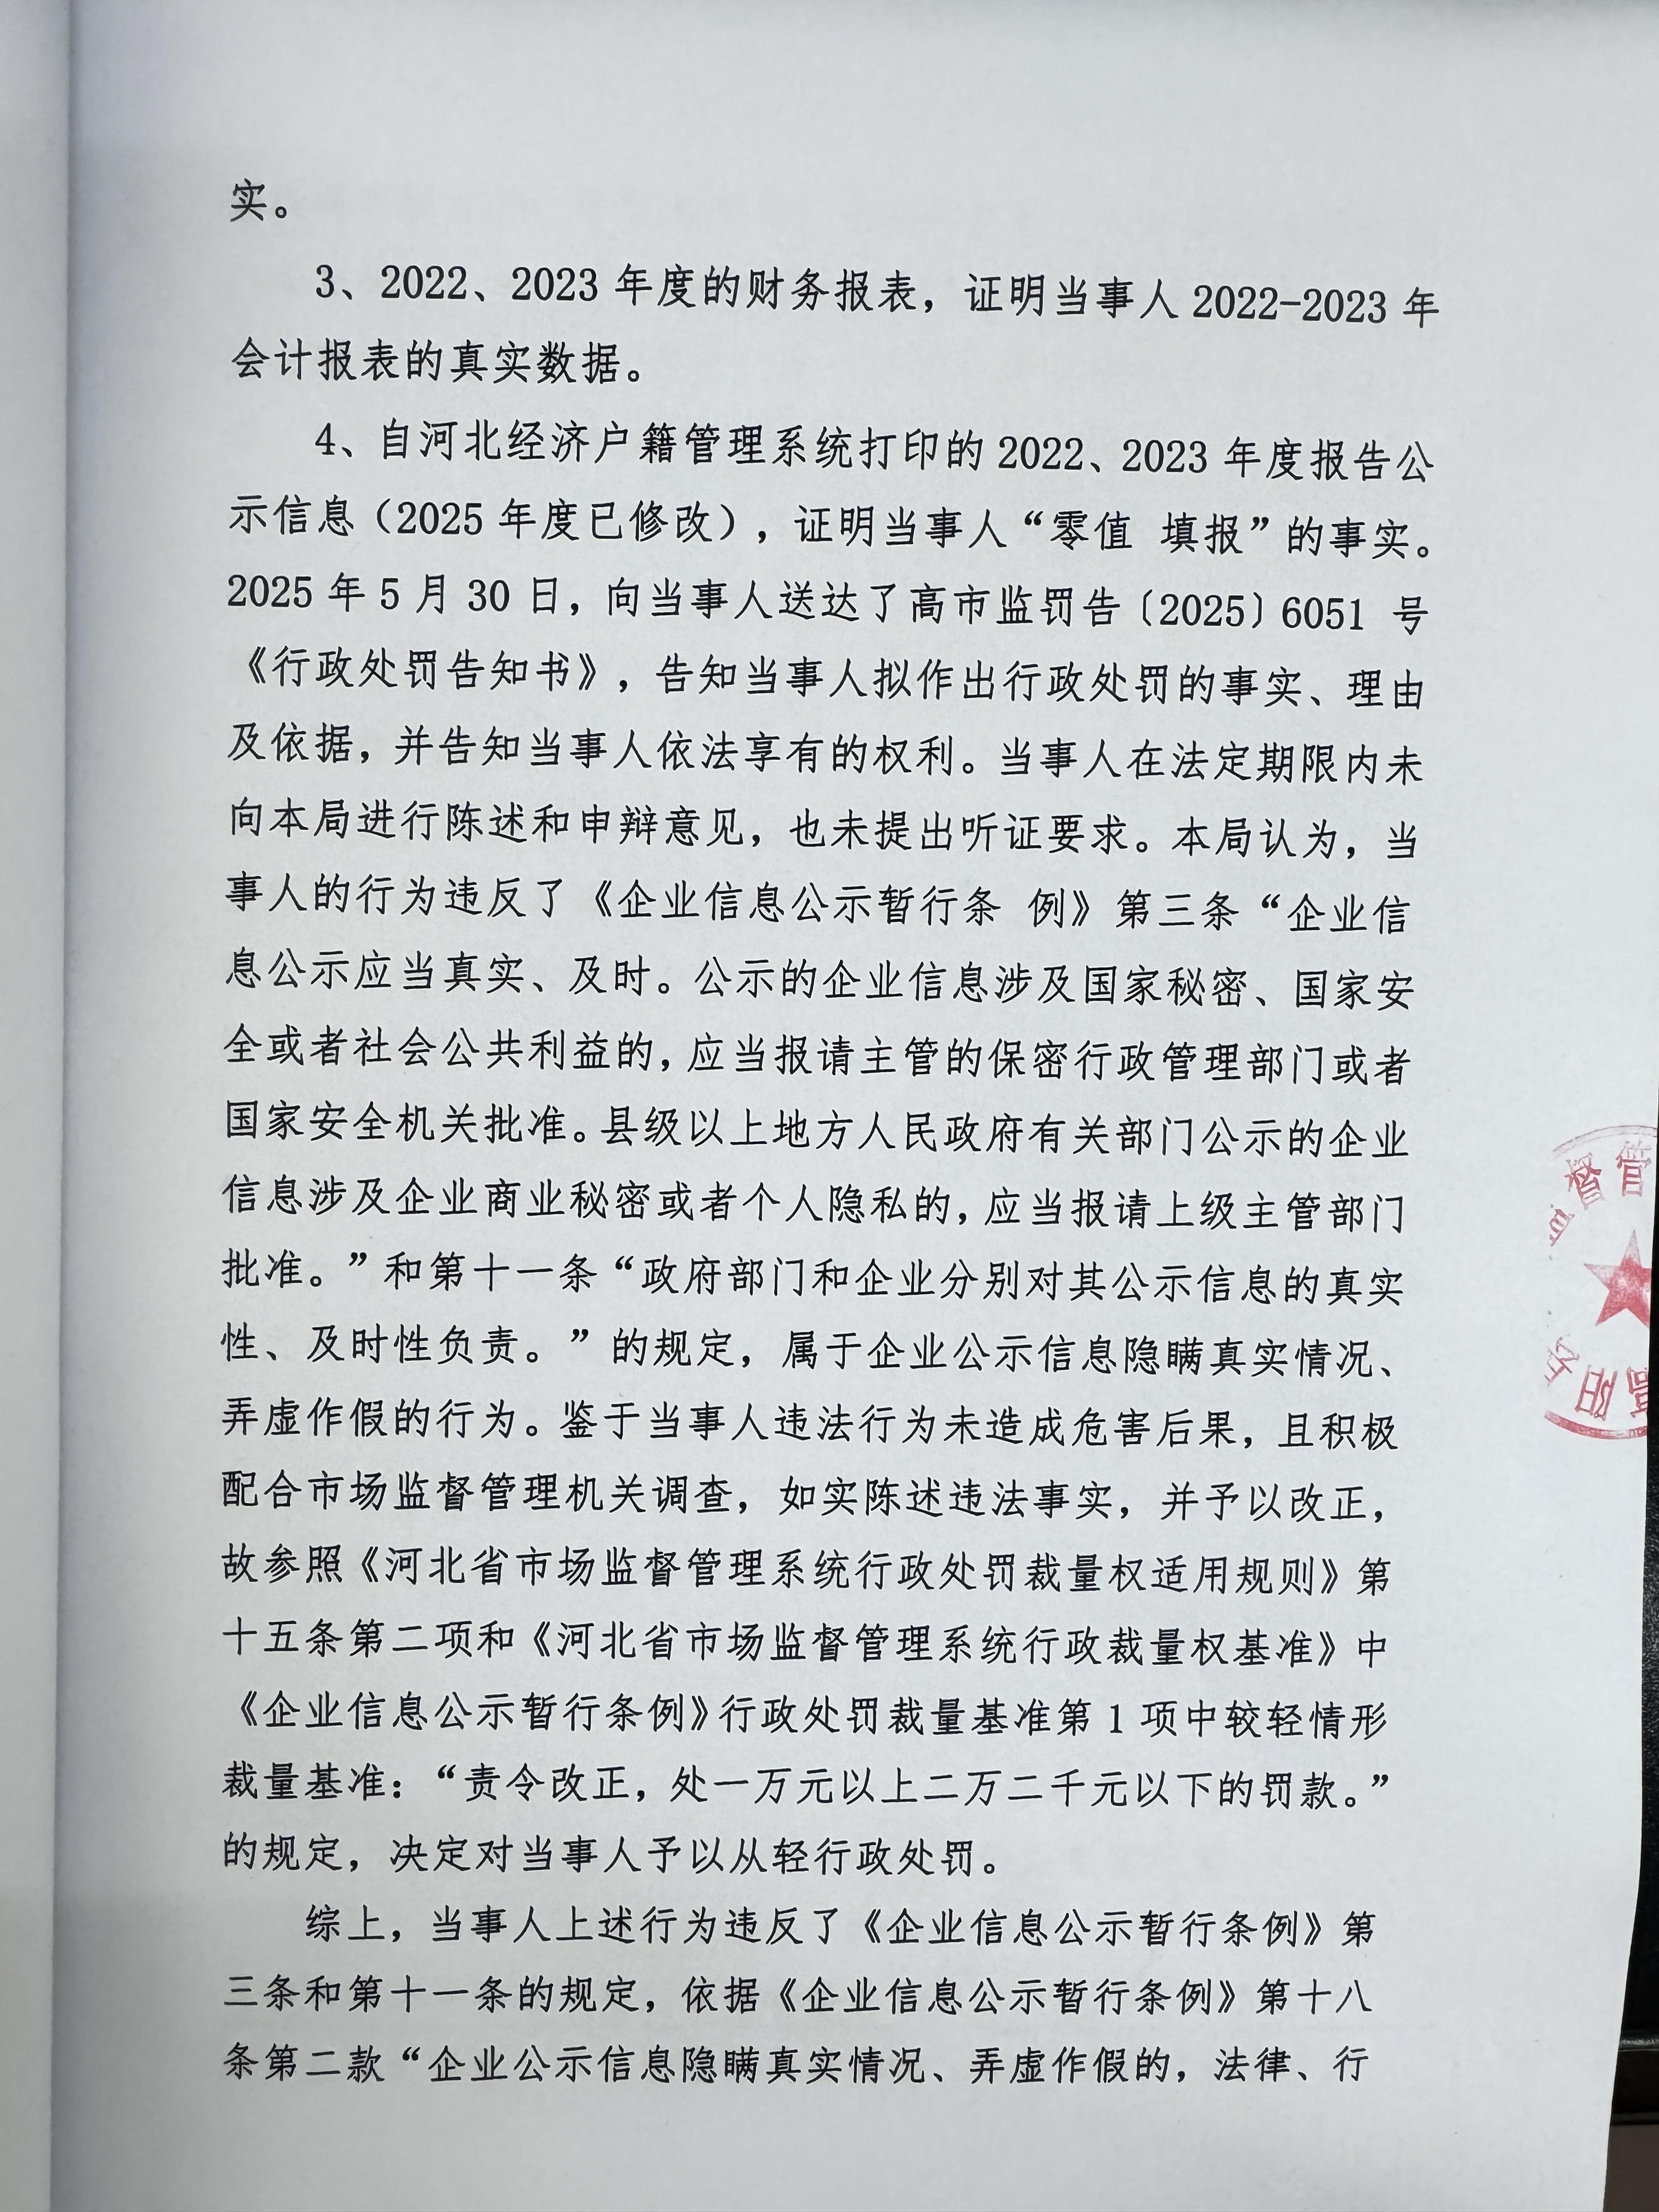 实。
3、2022、2023 年度的财务报表，证明当事人 2022-2023 年
会计报表的真实数据。
4、自河北经济户籍管理系统打印的 2022、2023 年度报告公
示信息（2025 年度已修改），证明当事人“零值 填报”的事实。
2025 年 5 月 30 日，向当事人送达了高市监罚告〔2025〕6051 号
《行政处罚告知书》，告知当事人拟作出行政处罚的事实、理由
及依据，并告知当事人依法享有的权利。当事人在法定期限内未
向本局进行陈述和申辩意见，也未提出听证要求。本局认为，当
事人的行为违反了《企业信息公示暂行条 例》第三条“企业信
息公示应当真实、及时。公示的企业信息涉及国家秘密、国家安
全或者社会公共利益的，应当报请主管的保密行政管理部门或者
国家安全机关批准。县级以上地方人民政府有关部门公示的企业
信息涉及企业商业秘密或者个人隐私的，应当报请上级主管部门
批准。”和第十一条“政府部门和企业分别对其公示信息的真实
性、及时性负责。”的规定，属于企业公示信息隐瞒真实情况、
弄虚作假的行为。鉴于当事人违法行为未造成危害后果，且积极
配合市场监督管理机关调查，如实陈述违法事实，并予以改正，
故参照《河北省市场监督管理系统行政处罚裁量权适用规则》第
十五条第二项和《河北省市场监督管理系统行政裁量权基准》中
《企业信息公示暂行条例》行政处罚裁量基准第 1 项中较轻情形
裁量基准：“责令改正，处一万元以上二万二千元以下的罚款。”
的规定，决定对当事人予以从轻行政处罚。
综上，当事人上述行为违反了《企业信息公示暂行条例》第
三条和第十一条的规定，依据《企业信息公示暂行条例》第十八
条第二款“企业公示信息隐瞒真实情况、弄虚作假的，法律、行
督管
阳